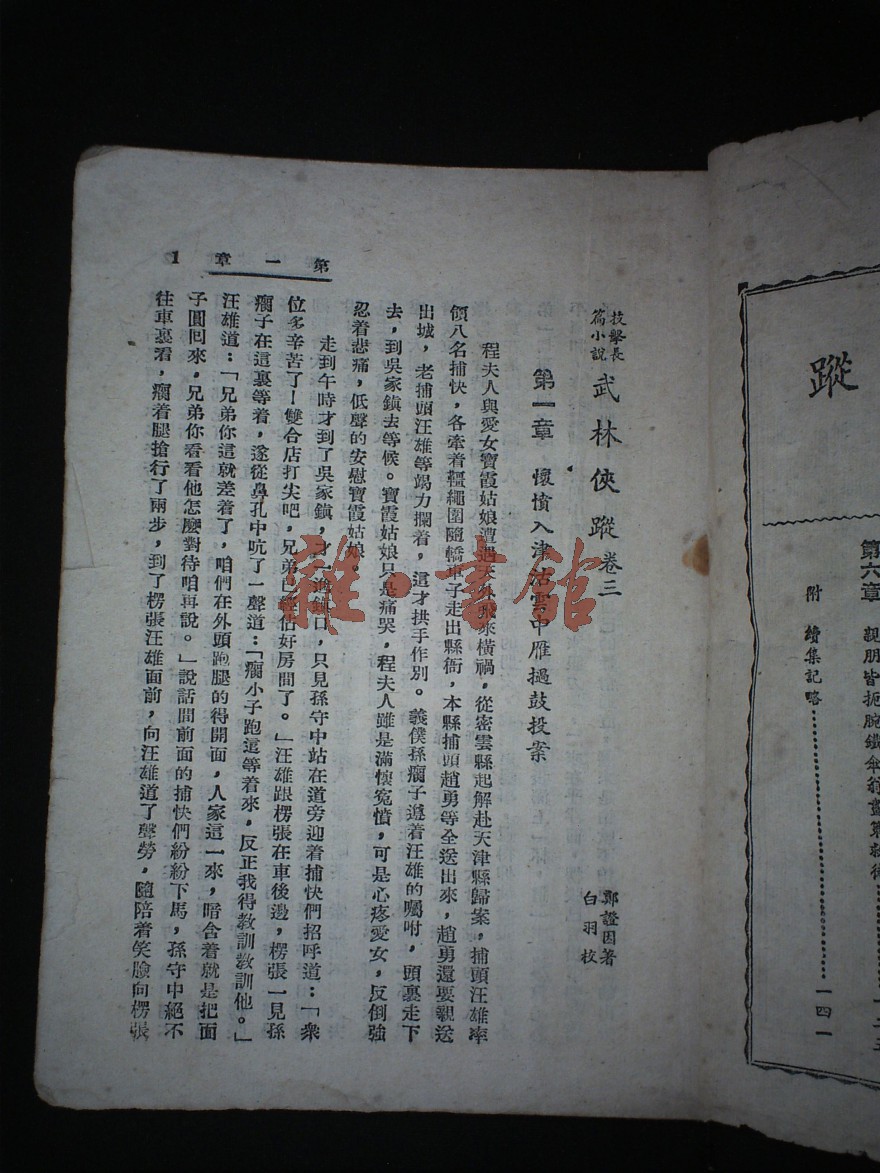 蹤
第六章
親朋皆扼腕鐵傘翁畫策
附 續集記略…………一四一
技擊長篇小說 武林俠蹤 卷三
鄭證因著
白羽校
第一章 懷憤入津沽雲中雁撾鼓投案
程夫人與愛女寶霞姑娘遭遇天外飛來橫禍,從密雲縣起解赴天津縣歸案,捕頭汪雄率
領八名捕快,各牽着韁繩圍隨轎車子走出縣衙,本縣捕頭趙勇等全送出來,趙勇還要親送
出城,老捕頭汪雄等竭力攔着,這才拱手作別。義僕孫瘸子遵着汪雄的囑咐,頭裏走下
去,到吳家鎮去等候。寶霞姑娘只是痛哭,程夫人雖是滿懷冤憤,可是心疼愛女,反倒強
忍着悲痛,低聲的安慰寶霞姑娘。
走到午時才到了吳家鎮,才一進鎮口,只見孫守中站在道旁迎着捕快們招呼道:「衆
位多辛苦了!雙合店打尖吧,兄弟已經佔好房間了。」汪雄跟楞張在車後邊,楞張一見孫
瘸子在這裏等着,遂從鼻孔中吭了一聲道:「瘸小子跑這等着來,反正我得教訓教訓他。」
汪雄道:「兄弟你這就差着了,咱們在外頭跑腿的得開面,人家這一來,暗含着就是把面
子圓回來,兄弟你看看他怎麼對待咱再說。」說話間前面的捕快們紛紛下馬,孫守中絕不
往車裏看,瘸着腿搶行了兩步,到了楞張汪雄面前,向汪雄道了聲勞,隨陪着笑臉向楞張
第一章 1
雜·書館